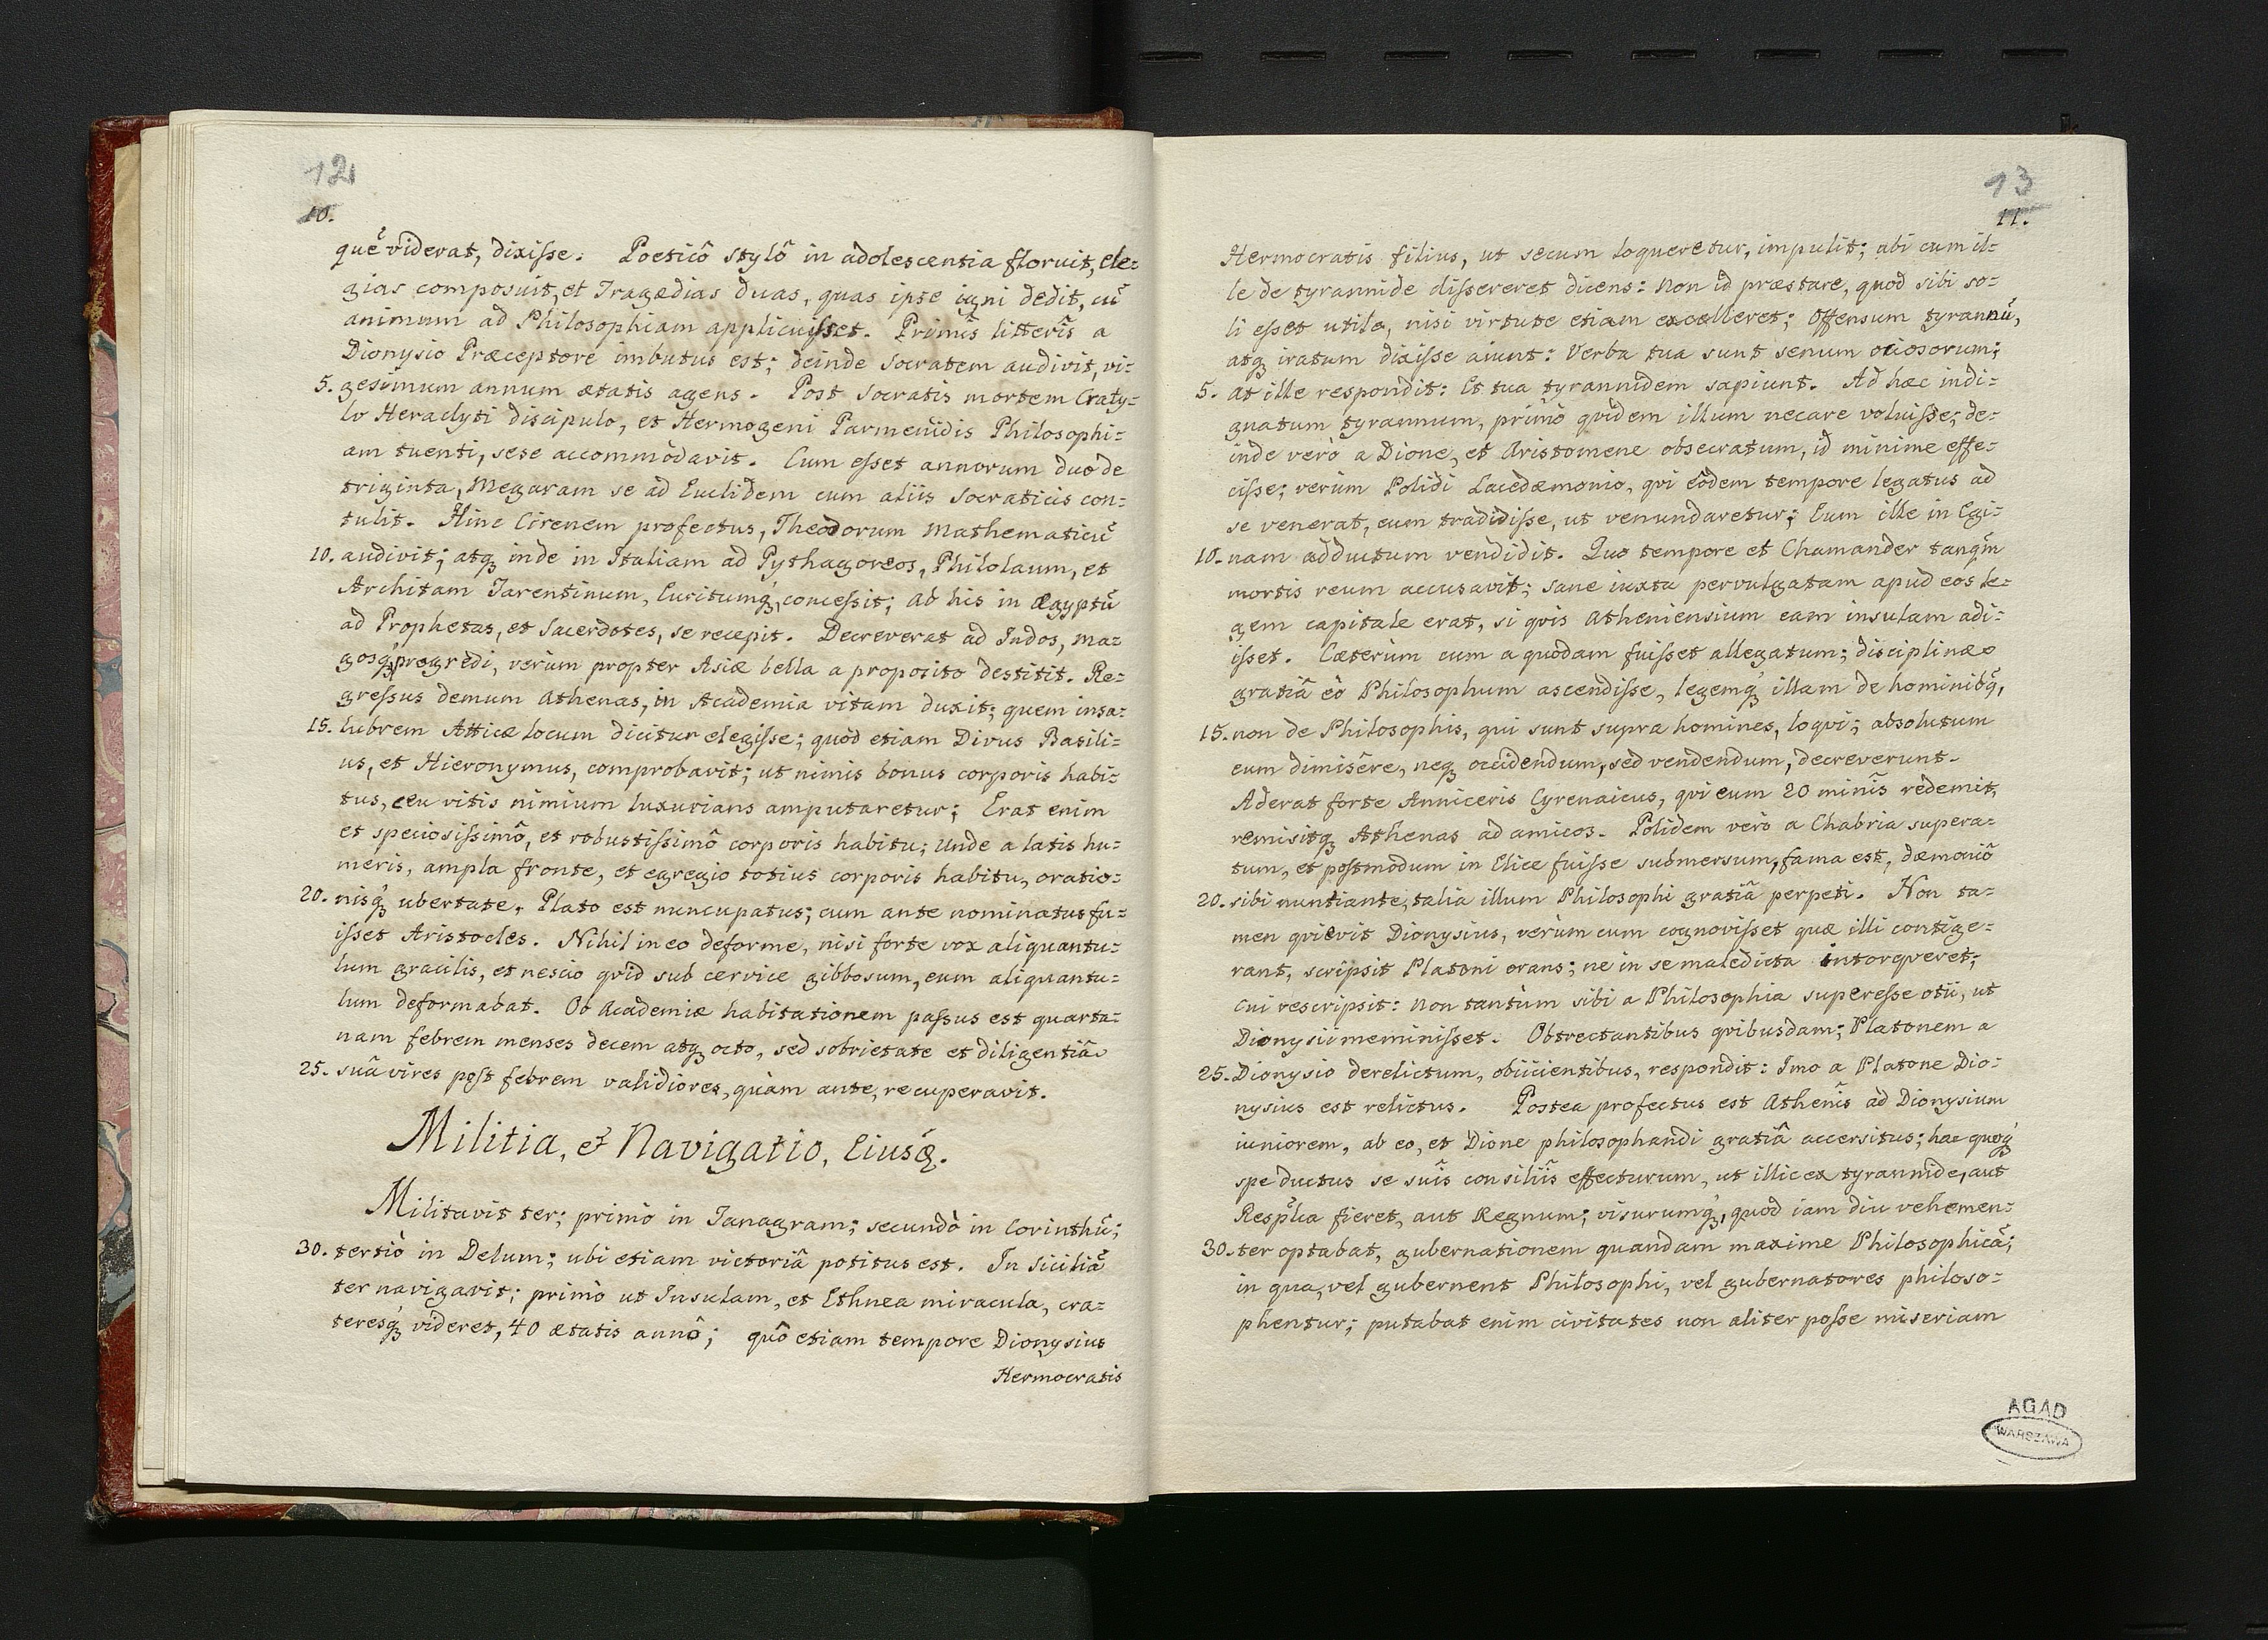 12
10.
quẽ viderat, dixisse. Poeticô stylô in adolescentia floruit, ele=
gias composuit, et Tragædias duas, quas ipse igni dedit, cũ
animum ad Philosophiam applicuisset. Primîs litterîs a
Dionysio Præceptore imbutus est; deinde Socratem audivit, vi=
5. gesimum annum ætatis agens. Post Socratis mortem Craty=
lo Heraclyti discipulo, et Hermogeni Parmenidis Philosophi=
am tuenti, sese accommodavit. Cum esset annorum duo de
triginta, Megaram se ad Euclidem cum aliis Socraticis con=
tulit. Hinc Cirenem profectus, Theodorum Mathematicũ
10. audivit; atq; inde in Italiam ad Pythagoreos, Philolaum, et
Architam Tarentinum, Euritumq;, concessit; ab his in Ægyptũ
ad Prophetas, et Sacerdotes, se recepit. Decreverat ad Indos, Ma=
gosq; progredi, verùm propter Asiæ bella a proposito destitit. Re=
gressus demum Athenas, in Academia vitam duxit; quem insa=
15. lubrem Atticæ locum dicitur elegisse; quòd etiam Divus Basili=
us, et Hieronymus, comprobavit; ut nimis bonus corporis habi=
tus, ceu vitis nimium luxurians amputaretur; Erat enim
et speciosissimô, et robustissimô corporis habitu; unde a latis hu=
meris, ampla fronte, et egregio totius corporis habitu, oratio=
20. nisq; ubertate, Plato est nuncupatus; cum ante nominatus fu=
isset Aristocles. Nihil in eo deforme, nisi forte vox aliquantu=
lum gracilis, et nescio qvid sub cervice gibbosum, eum aliquantu=
lum deformabat. Ob Academiæ habitationem passus est quarta=
nam febrem menses decem atq; octo, sed sobrietate et diligentiâ
25. suâ vires post febrem validiores, quàm ante, recuperavit.
Militia, & Navigatio, Eiusq;.
Militavit ter; primò in Tanagram; secundò in Corinthũ;
30. tertiò in Delum; ubi etiam victoriâ potitus est. In Siciliã
ter navigavit; primò ut Insulam, et Ethnea miracula, cra=
teresq; videret, 40 ætatis annô; quô etiam tempore Dionysius
Hermocratis
13
11.
Hermocratis filius, ut secum loqueretur, impulit; ubi cum il=
le de tyrannide dissereret dicens: Non id præstare, quod sibi so=
li esset utile, nisi virtute etiam excelleret; Offensum tyrannũ,
atq; iratum dixisse aiunt: Verba tua sunt senum otiosorum;
5. at ille respondit: Et tua tyrannidem sapiunt. Ad hæc indi=
gnatum tyrannum, primò qvidem illum necare voluisse; de=
inde verò a Dione, et Aristomene obsecratum, id minime effe=
cisse; verùm Polidi Lacedæmonio, qvi eôdem tempore legatus ad
se venerat, eum tradidisse, ut venundaretur; Eum ille in Egi=
10. nam adductum vendidit. Quo tempore et Chamander tanq̃m
mortis reum accusavit; sane iuxta pervulgatam apud eos le=
gem capitale erat, si qvis Atheniensium eam insulam adi=
isset. Cæterùm cum a quodam fuisset allegatum; disciplinæ
gratiâ eò Philosophum ascendisse, legemq; illam de hominibq̃,
15. non de Philosophis, qui sunt supra homines, loqvi; absolutum
eum dimisêre, neq; occidendum, sed vendendum, decreverunt.
Aderat forte Anniceris Cyrenaicus, qvi eum 20 minîs redemit,
remisitq; Athenas ad amicos. Polidem verò a Chabria supera=
tum, et postmodum in Elice fuisse submersum, fama est, dæmoniô
20. sibi nuntiante, talia illum Philosophi gratiâ perpeti. Non ta=
men qvievit Dionysius, verùm cum cognovisset quæ illi contige=
rant, scripsit Platoni orans; ne in se maledicta intorqveret;
Cui rescripsit: non tantùm sibi a Philosophia superesse otii, ut
Dionysii meminisset. Obtrectantibus qvibusdam; Platonem a
25. Dionysio derelictum, obiicientibus, respondit: Imo a Platone Dio=
nysius est relictus. Postea profectus est Athenîs ad Dionysium
iuniorem, ab eo, et Dione philosophandi gratiâ accersitus; hac quoq;
spe ductus se suîs consiliîs effecturum, ut illic ex tyrannide, aut
Respũa fieret, aut Regnum; visurumq;, quod iam diu vehemen=
30. ter optabat, gubernationem quandam maxime Philosophicã;
in qua, vel gubernent Philosophi, vel gubernatores philoso=
phentur; putabat enim civitates non aliter posse miseriam
AGAD
WARSZAWA